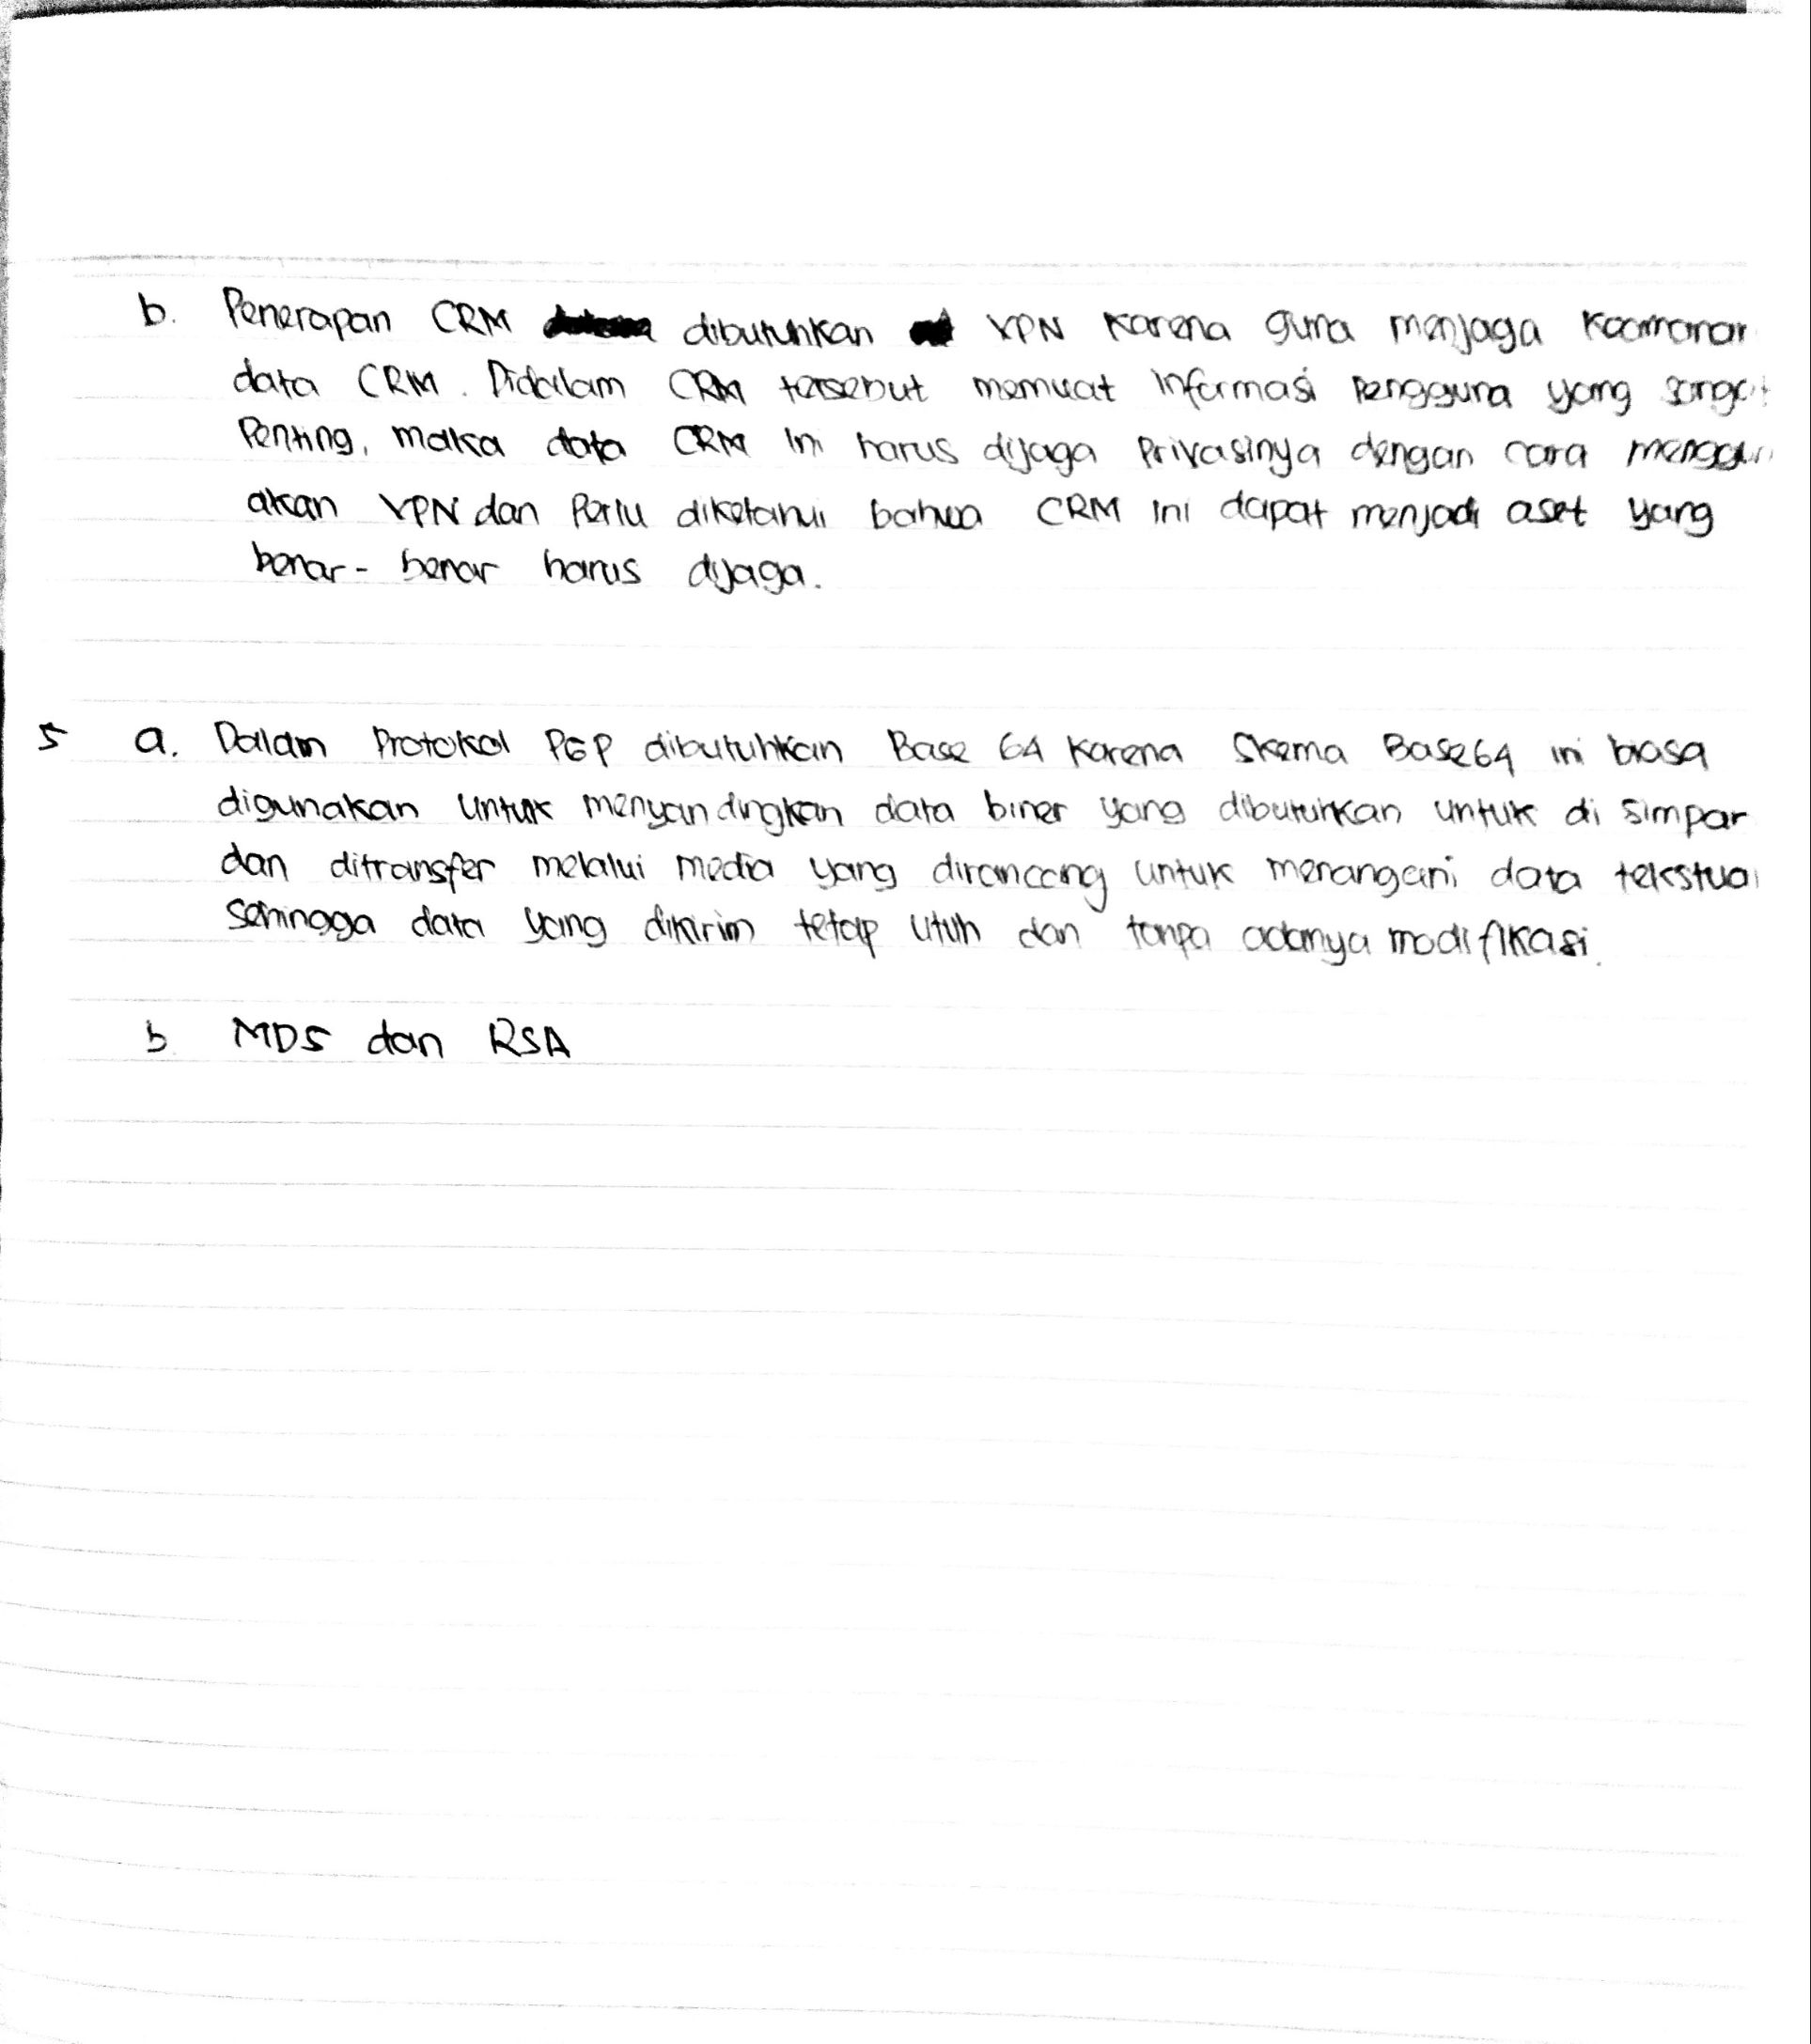 b. Penerapan CRM dibutuhkan VPN karena guna menjaga keamanan
data CRM. Didalam CRM tersebut memuat informasi pengguna yang sangat
penting, maka data CRM ini harus dijaga privasinya dengan cara menggun
akan VPN dan perlu diketahui bahwa CRM ini dapat menjadi aset yang
benar - benar harus dijaga.
5 a. Dalam protokol PGP dibutuhkan Base 64 karena skema Base64 ini biasa
digunakan untuk menyandingkan data biner yang dibutuhkan untuk di simpan
dan ditransfer melalui media yang dirancang untuk menangani data tekstual
sehingga data yang dikirim tetap utuh dan tanpa adanya modifikasi.
b MD5 dan RSA